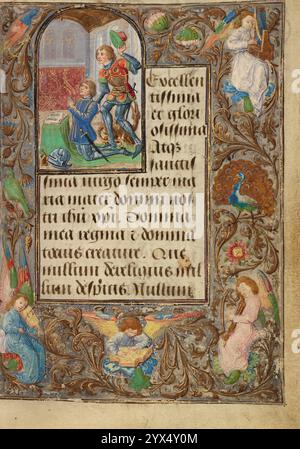 Excellen
tissima
et glori
osissima
Atqz
sanctis
sima uirgo semper ma
ria mater domini nost
ri ihu xpi. Domina
mea regina et domina
totius creature. Que
nullum derelinquis nul
lum despicis Nullum
alamy
Image ID: 2YX4Y0M
www.alamy.com